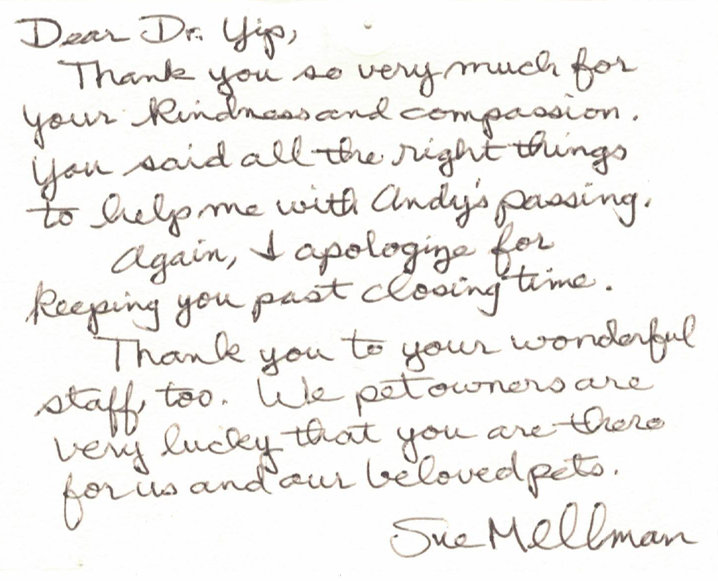 Dear Dr. Yip,
Thank you so very much for
your kindness and compassion.
You said all the right things
to help me with Andy's passing.
Again, I apologize for
keeping you past closing time.
Thank you to your wonderful
staff, too. We pet owners are
very lucky that you are there
for us and our beloved pets.
Sue Mellman